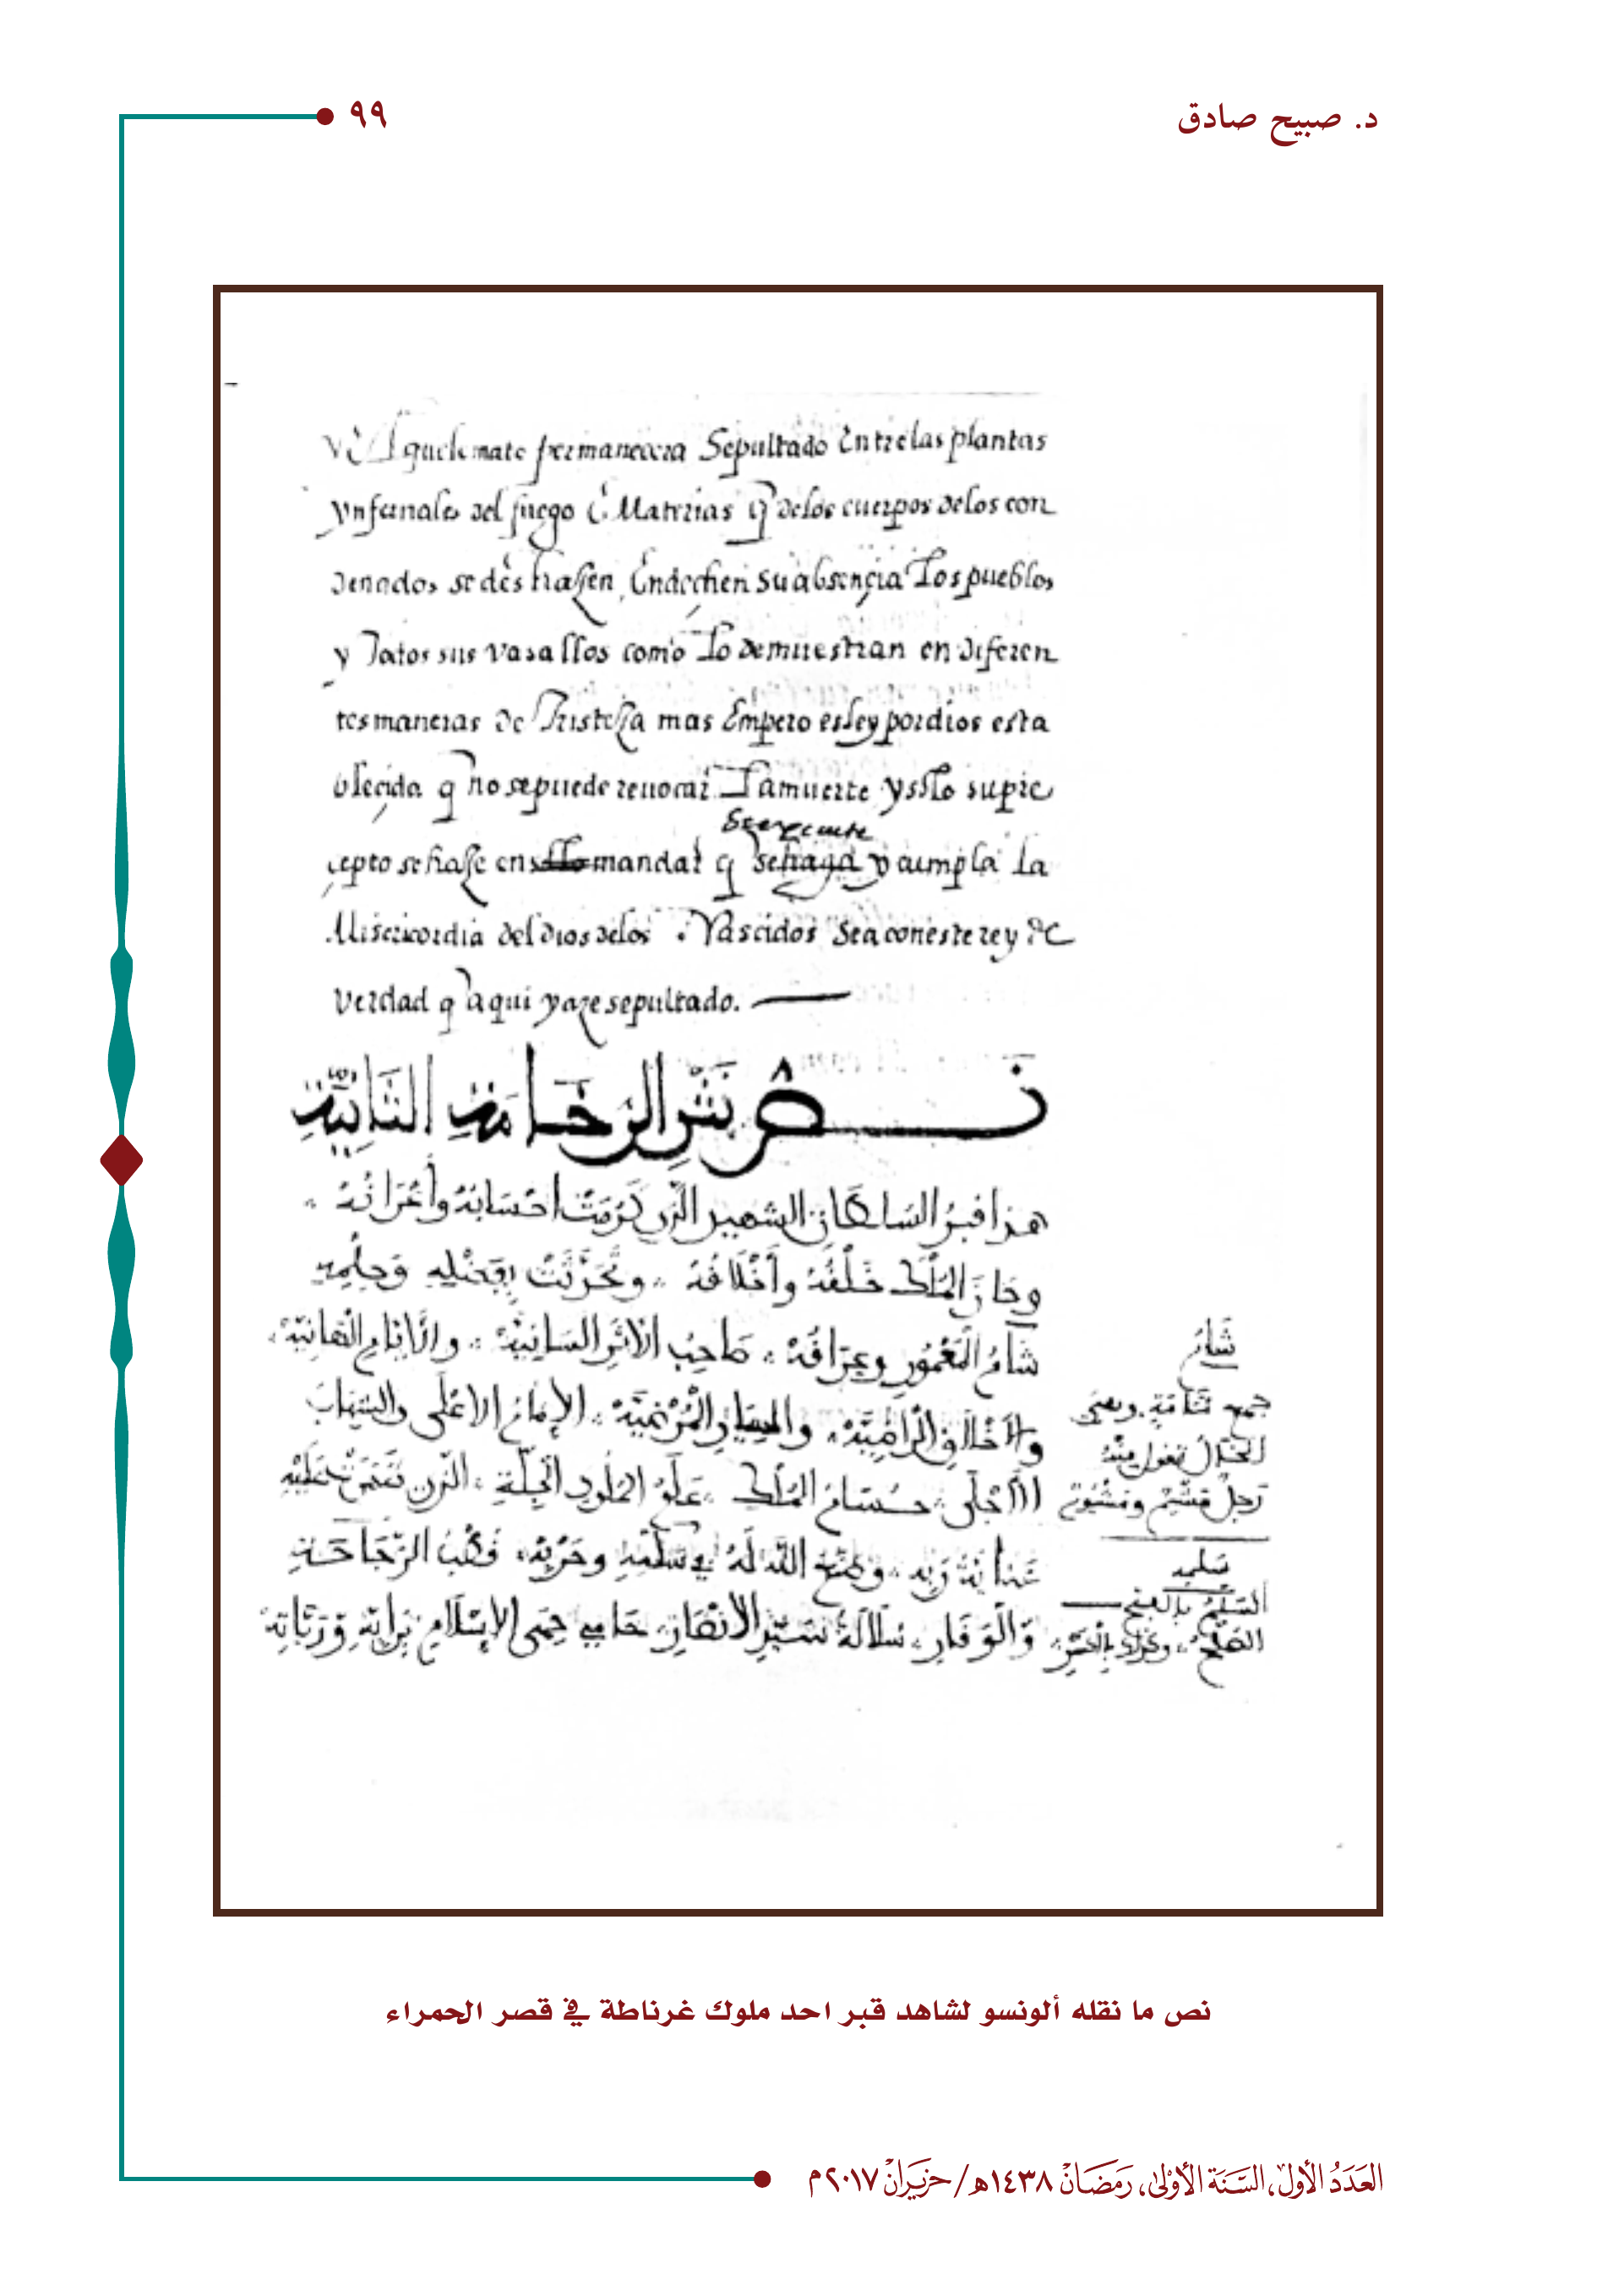 د. صبيح صادق
٩٩
quele mato permanecera Sepultado Entrelas plantas
ynfernales del fuego Materias q̄ delos cuerpos delos con
denados se deshasen Endechen su absençia Los pueblos
y todos sus vasallos como lo demuestran en diferen
tes maneras de tristeza mas Empero es ley por dios esta
blecida q̄ no sepuede reuocar La muerte y solo su pre
çepto se hase en mandar q̄ se haga y cumpla La
Misericordia del dios delos Nascidos Sea con este rey de
verdad q̄ aqui yaze sepultado.
نص نثر الرخامة الثانية
هذا قبر السلطان الشهير الذي كرمت احسابه وأعراقه
وحاز الملك خلقه وأخلاقه وتحدثت بفضله وحلمه
شام المعمور وعراقه صاحب الاثر السانية والايام الهانية
والاخلاق الراضية والسير المرضية الإمام الاعلى والشهاب
الاجلى حسام الملك علم الملوك الجلة الذي ظهرت عليه
عناية ربه وصنع الله له في سلمه وحربه قطب الرجاحة
والوقار سلالة سيد الانصار حامي حمى الإسلام برايه وراياته
شام
جمع شامة
رجل مشيم ومشيوم
سلمه
السلم بالفتح
الصلح
نص ما نقله ألونسو لشاهد قبر احد ملوك غرناطة في قصر الحمراء
العَدَدُ الأوَل، السَّنَة الأوْلىٰ، رَمَضَانْ ١٤٣٨هـ/حزيَرانْ ٢٠١٧م